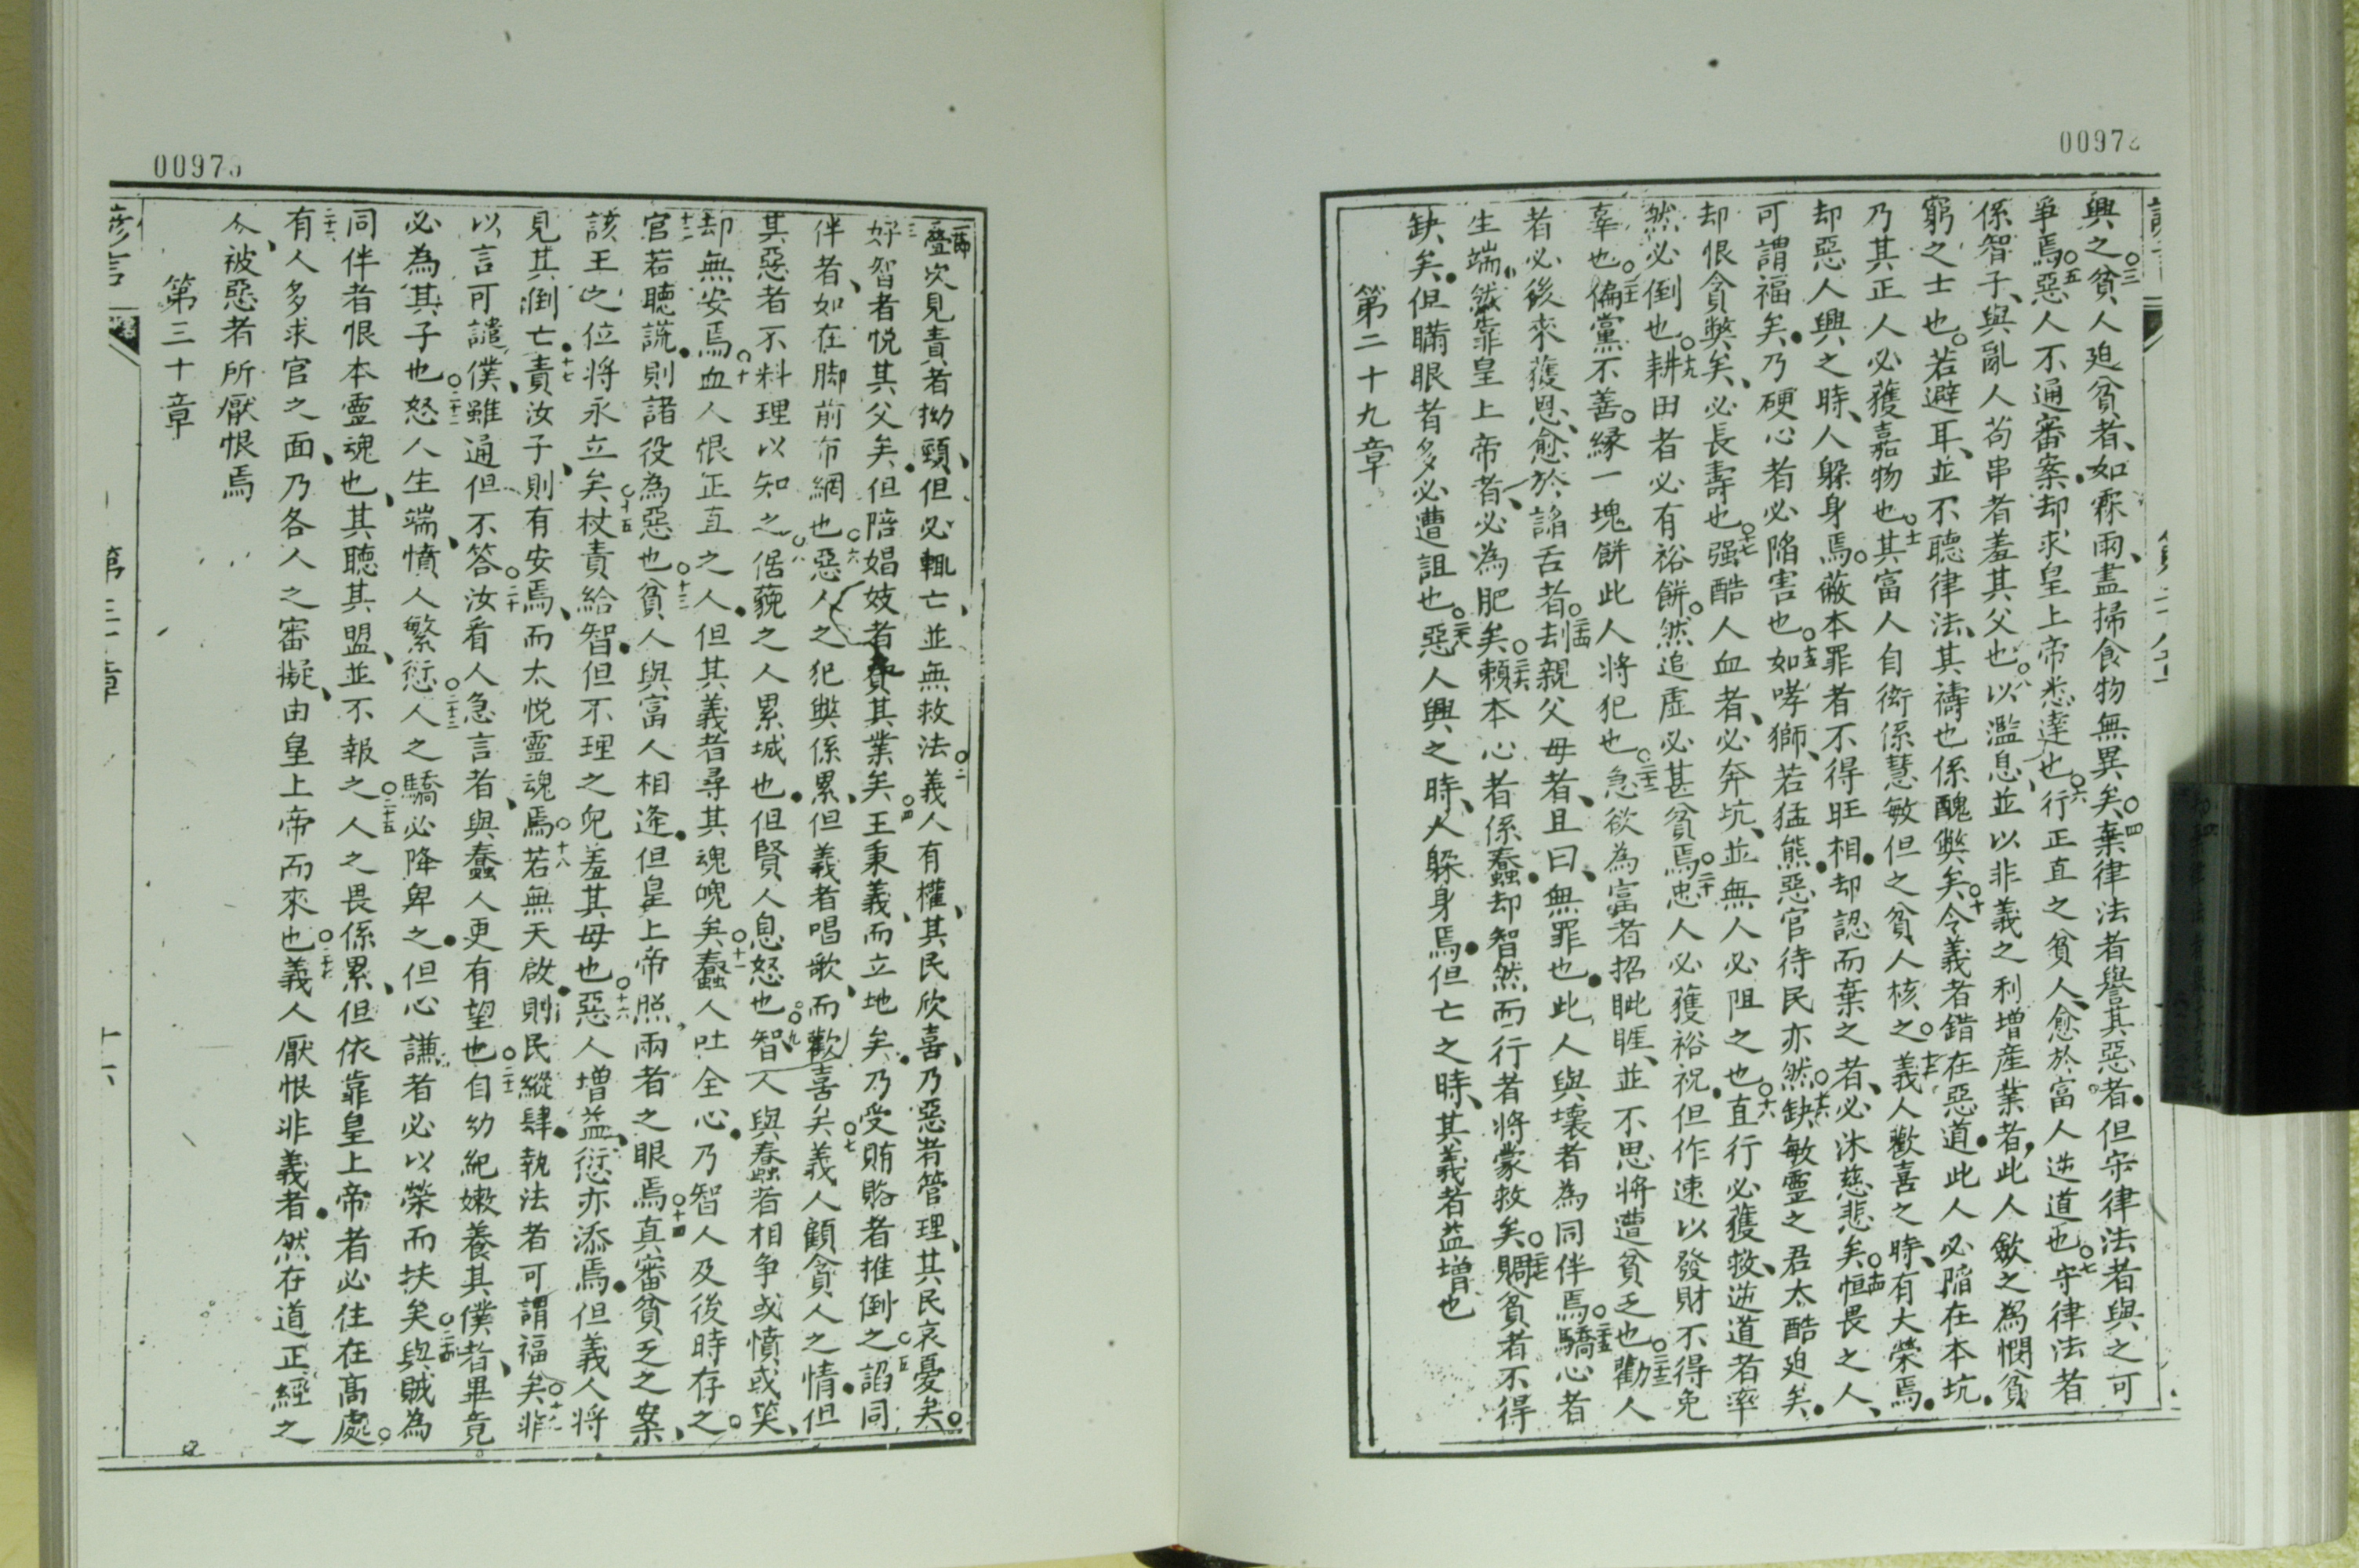 00972
興之○三貧人迫貧者、如霖雨、盡掃食物無異矣○四棄律法者譽其惡者、但守律法者與之可
爭焉○五惡人不通審案、却求皇上帝悉達也○六行正直之貧人、愈於富人迆道也○七守律法者
係智子、與亂人苟串者羞其父也○八以濫息、並以非義之利增産業者、此人歛之為憫貧
窮之士也○若避耳、並不聽律法、其禱也係醜弊矣○十令義者錯在惡道、此人必陷在本坑、
乃其正人必獲嘉物也○十一其富人自衒係慧敏但之貧人核之○十二義人歡喜之時、有大榮焉、
却惡人興之時、人躲身焉○蔽本罪者不得旺相、却認而棄之者、必沐慈悲矣○十四恒畏之人、
可謂福矣、乃硬心者必陷害也○十五如哮獅、若猛熊、惡官待民亦然○十六缺敏靈之君太酷迫矣、
却恨貪弊矣、必長壽也○十七强酷人血者、必奔坑、並無人必阻之也○十八直行必獲救、迆道者率
然必倒也○十九耕田者必有裕餅○然追虛必甚貧焉○二十忠人必獲裕祝、但作速以發財不得免
辜也○二十一偏黨不善○緣一塊餅此人將犯也○二十二急欲為富者招眦睚、並不思將遭貧乏也○二十三勸人
者必後來獲恩、愈於諂舌者○二十四刦親父毋者、且曰、無罪也、此人與壞者為同伴焉○二十五驕心者
生端、然靠皇上帝者、必為肥矣○二十六賴本心者係蠢、却智然而行者將蒙救矣○二十七賙貧者不得
缺矣、但瞞眼者多必遭詛也○二十八惡人興之時、人躲身焉、但亡之時、其義者益增也
第二十九章
00973
一節疊次見責者拗頸、但必輒亡、並無救法○二義人有權、其民欣喜、乃惡者管理、其民哀憂矣○
三好智者悅其父矣、但陪娼妓者費其業矣○四王秉義、而立地矣、乃受賄賂者推倒之○五諂同
伴者、如在脚前布網也○六惡人之犯與係累、但義者唱歌、而歡喜矣○七義人顧貧人之情、但
其惡者不料理以知之○八侮藐之人累城也、但賢人息怒也○九智人與蠢者相争或憤或笑、
却無安焉○十血人恨正直之人、但其義者尋其魂魄矣○十一蠢人吐全心、乃智人及後時存之○
十二官若聽謊、則諸役為惡也○十三貧人與富人相逢、但皇上帝照兩者之眼焉○十四真審貧乏之案、
該王之位將永立矣○十五杖責給智、但不理之兒羞其母也○十六惡人增益、愆亦添焉、但義人將
見其倒亡、十七責汝子、則有安焉、而太悅靈魂焉○十八若無天啟、則民縱肆、執法者可謂福矣○十九非
以言可譴僕、雖通但不答○二十汝看人急言者、與蠢人更有望也○二十一自幼紀嫩養其僕者、畢竟
必為其子也○二十二怒人生端、憤人繁愆○二十三人之驕必降卑之、但心謙者必以榮而扶矣○二十四與賊為
同伴者恨本靈魂也、其聽其盟、並不報之○二十五人之畏係累、但依靠皇上帝者必住在高處○
二十六有人多求官之面、乃各人之審擬、由皇上帝而來也○二十七義人厭恨非義者、然在道正經之
人、被惡者所厭恨焉
第三十章
諺言
第三十章
十六